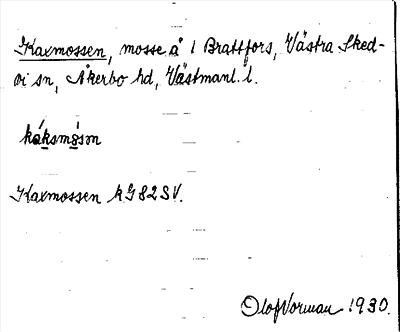 Kaxmossen, mosse å 1 Brattfors, Västra Sked-
vi sn, Åkerbo hd, Västmanl. l.
kaksmåsm
Kaxmossen kG 82 SV.
Olof Norman 1930.